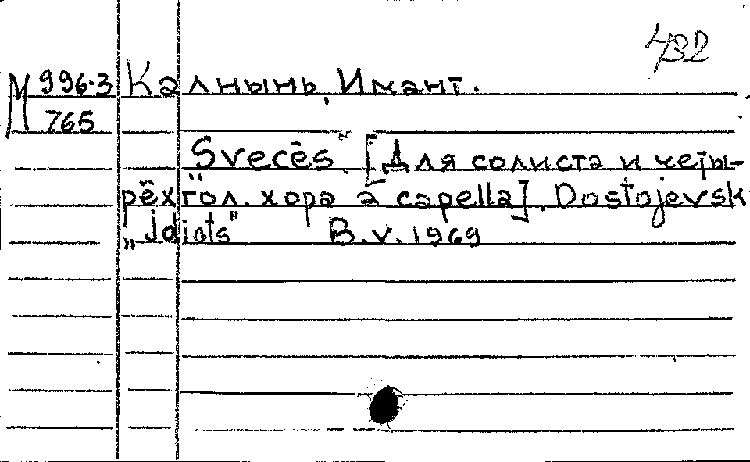 432
М 996-3 Калнынь, Имант.
765
"Svecēs" [Для солиста и четы-
рёхгол. хора a capella]. Dostojevsk
„Idiots" B.v. 1969